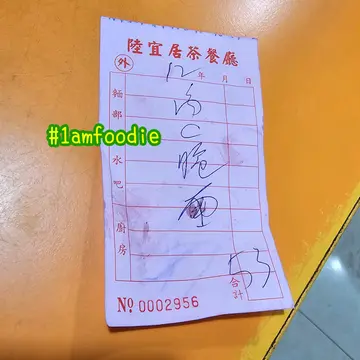 陸宜居茶餐廳
外
12 年 月 日
麵部
#1amfoodie
水吧
廚房
C
53
合計
No 0002956